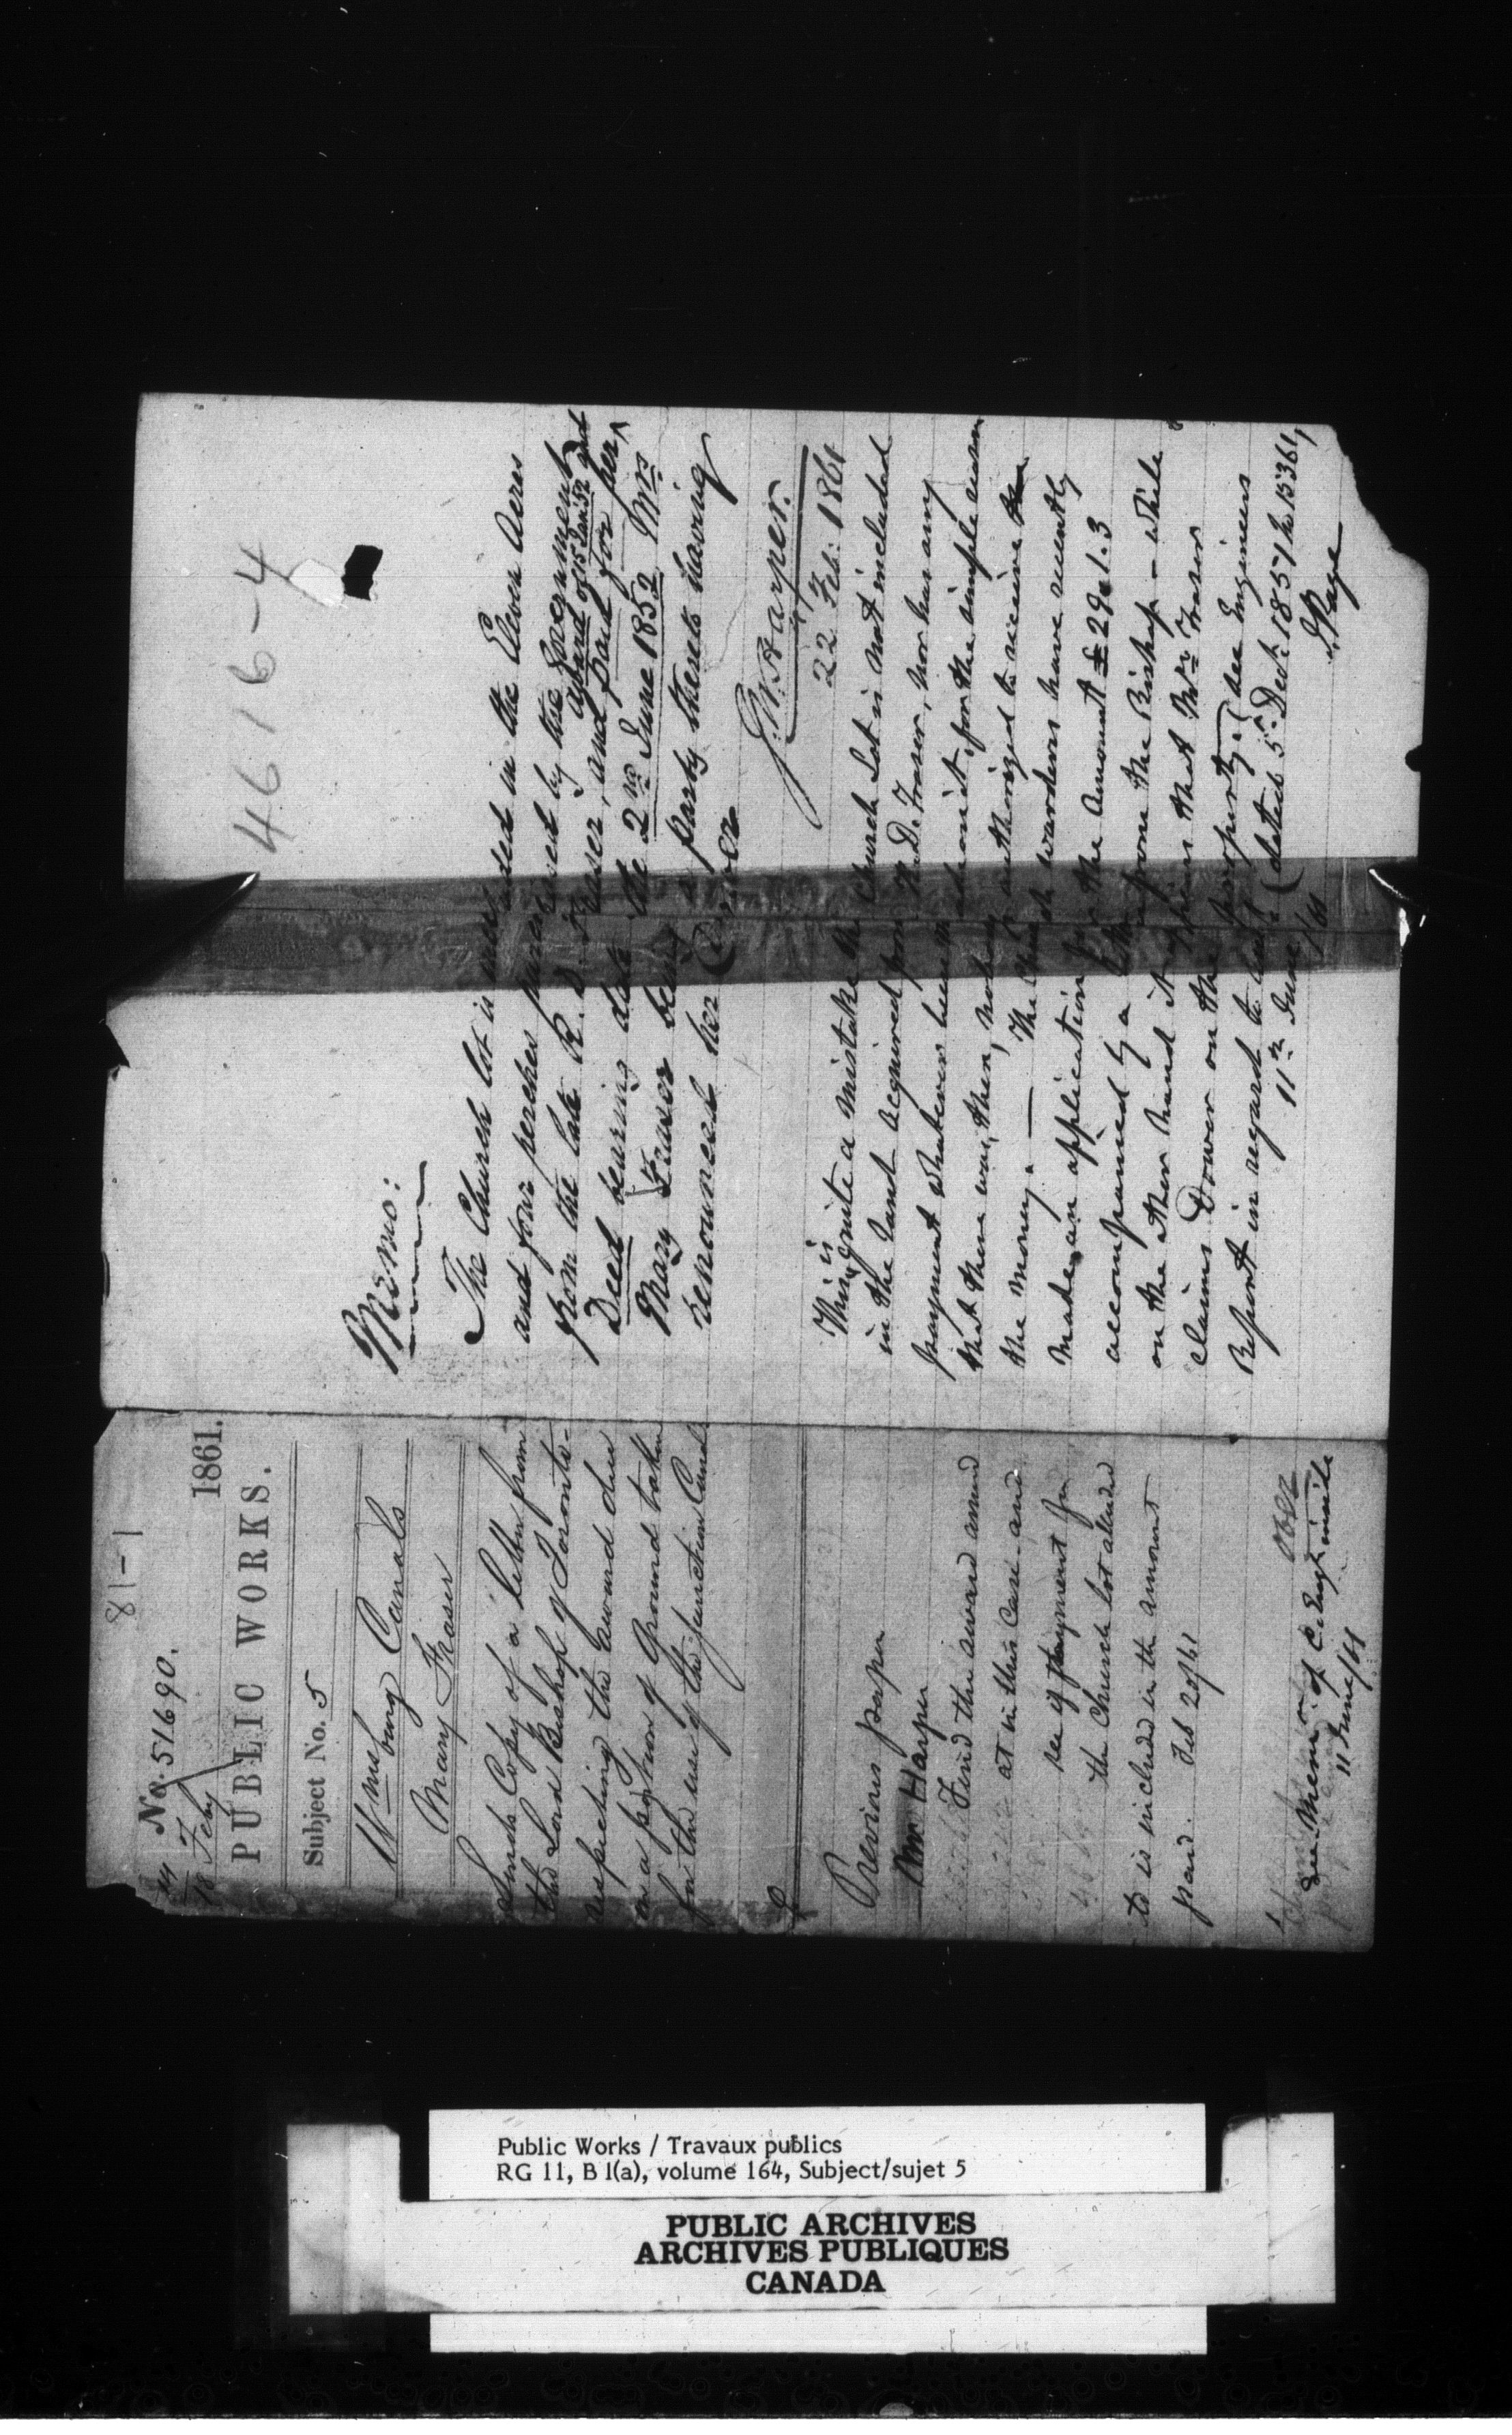 81-1
No. 51690.
14/18 Feby 1861.
PUBLIC WORKS.
Subject No. 5
Wmsburg Canals
Mary Fraser
Sends Copy of a letter from
the Lord Bishop of Toronto-
respecting the award due
on a portion of Ground taken
for the use of the Junction Canal
Previous paper
Mr Harper
Find the award arrived
at in this case and
see if payment for
the Church lot alluded
to is included in the amount
paid. Feb 20/61
See Memo. of C. Engr inside
11 June/61
46 16-4
Memo:
The Church lot is included in the Eleven Acres
and four perches purchased by the Government
from the late R. D. Fraser, and paid for per
award of 15 Jan 52 and
Deed bearing date the 2nd June 1852 Mrs
Mary Fraser being a party thereto having
renounced her Dower
J. W. Harper.
22 Feb: 1861
This is quite a mistake the Church Lot is not included
in the Land acquired from R. D. Fraser, nor has any
payment whatever been made on it, for the simple reason
that there was, then, nobody authorized to receive the
the money. — The Church wardens have recently
made an application for the amount £29.1.3
accompanied by a letter from the Bishop - while
on the other hand it appears that Mrs Fraser
claims Dower on the property. (See Engineers
Report in regard to lot (dated 5th Dect. 1857 No 15361)
11th June /61
J. Page
Public Works / Travaux publics
RG 11, B 1(a), volume 164, Subject/sujet 5
PUBLIC ARCHIVES
ARCHIVES PUBLIQUES
CANADA